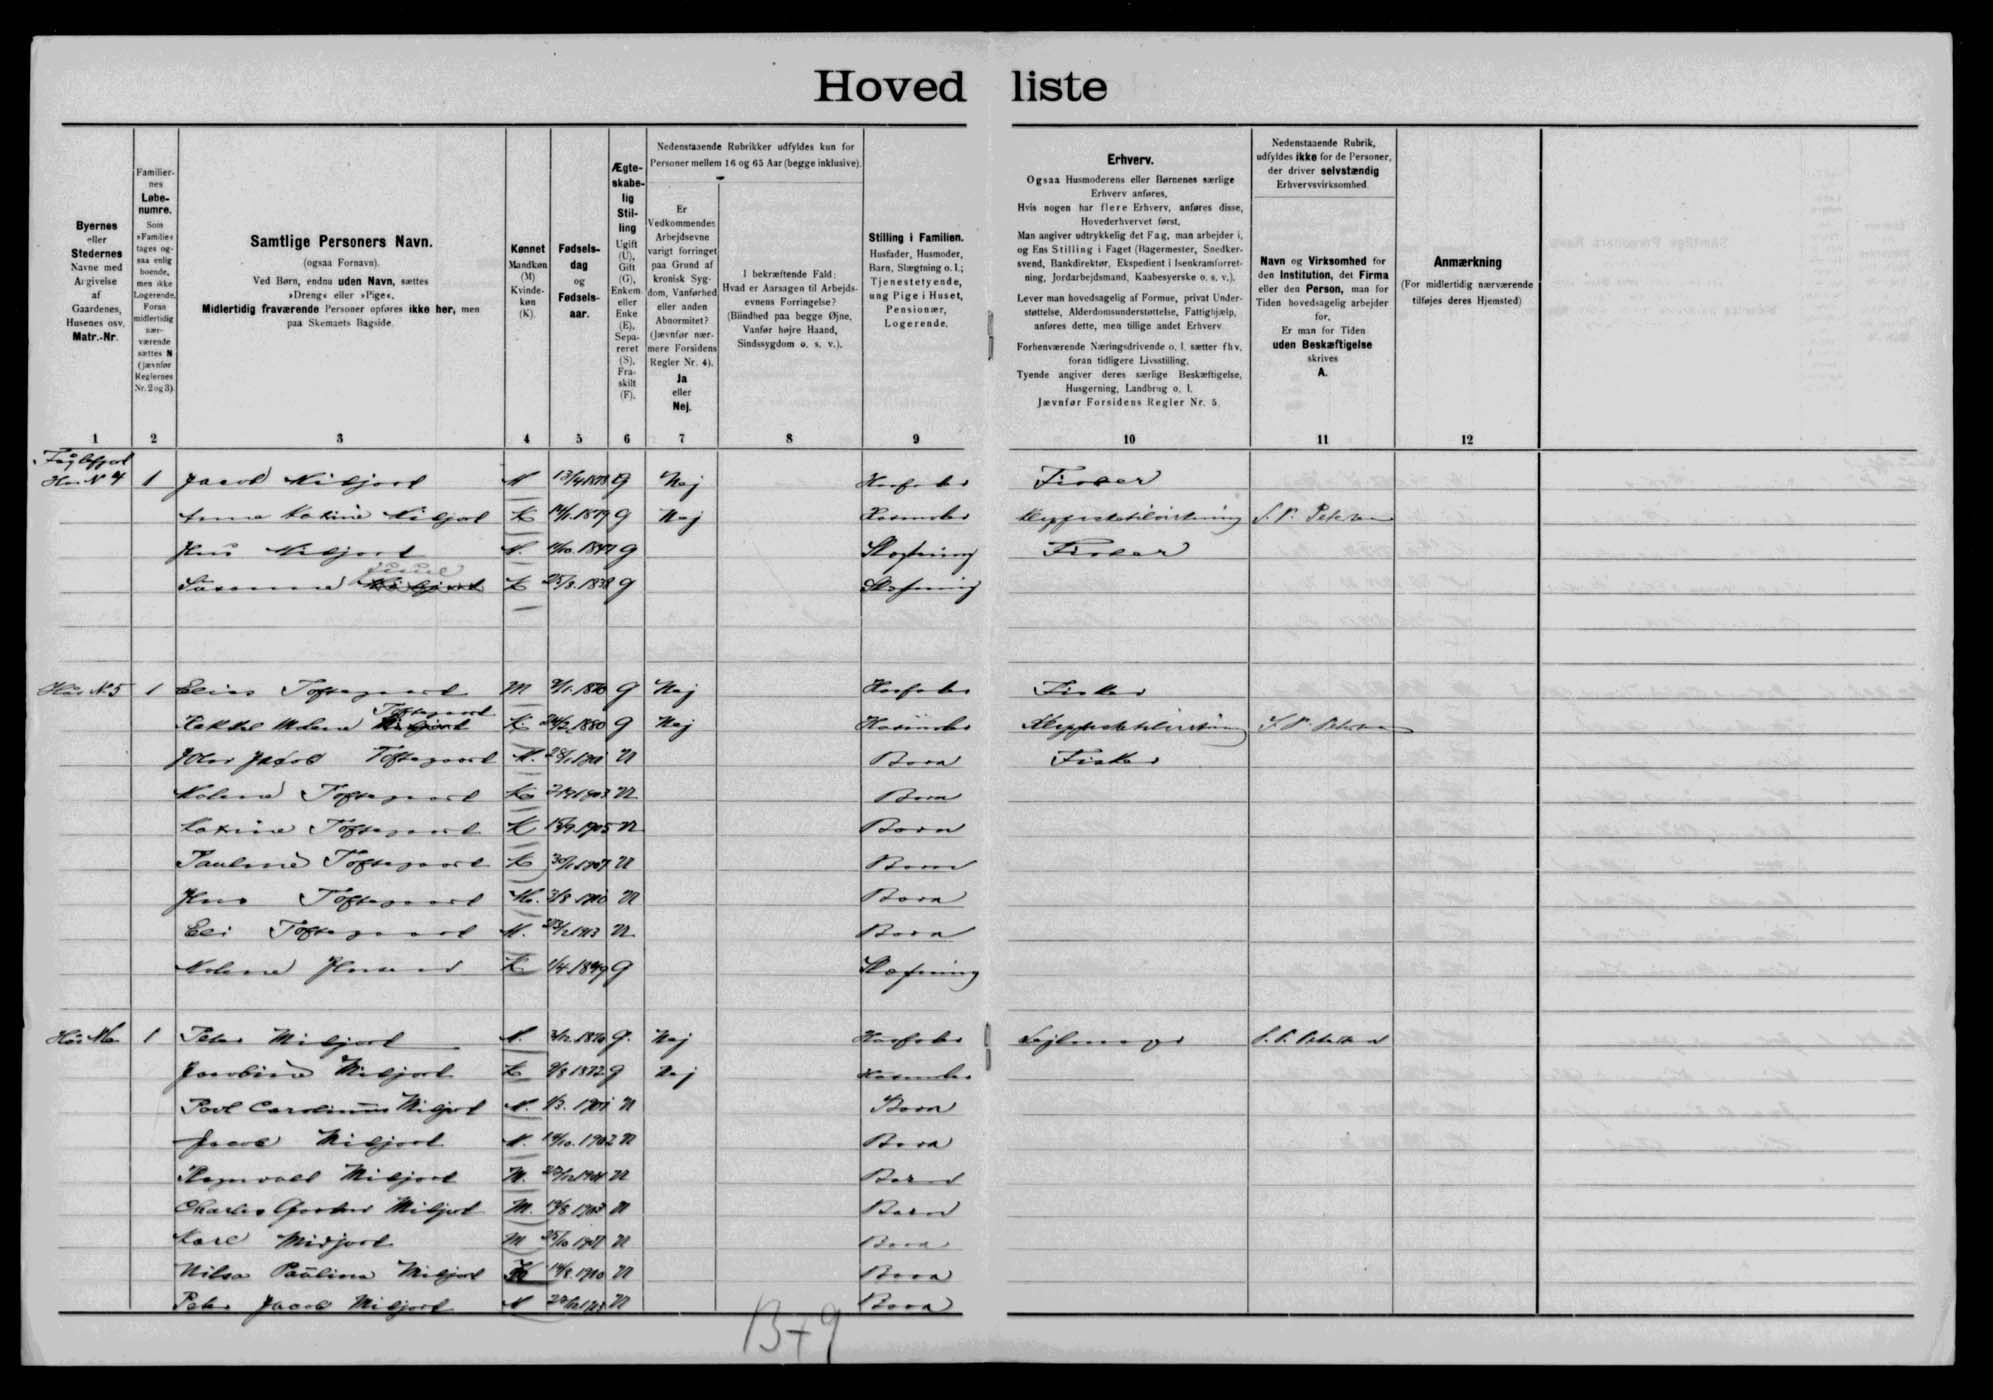 Hovedliste
Byernes
eller
Stedernes
Navne med
Angivelse
af
Gaardenes,
Husenes osv.
Matr.-Nr.
Familier-
nes
Løbe-
numre.
Som
»Familie«
tages og-
saa enlig
boende,
men ikke
Logerende.
Foran
midlertidig
nær-
værende
sættes N
(jævnfør
Reglernes
Nr. 2 og 3).
Samtlige Personers Navn.
(ogsaa Fornavn).
Ved Børn, endnu uden Navn, sættes
»Dreng« eller »Pige«.
Midlertidig fraværende Personer opføres ikke her, men
paa Skemaets Bagside.
Kønnet
Mandkøn
(M)
Kvinde-
køn
(K).
Fødsels-
dag
og
Fødsels-
aar.
Ægte-
skabe-
lig
Stil-
ling
Ugift
(U),
Gift
(G),
Enkem.
eller
Enke
(E),
Sepa-
reret
(S),
Fra-
skilt
(F).
Nedenstaaende Rubrikker udfyldes kun for
Personer mellem 16 og 65 Aar (begge inklusive).
Er
Vedkommendes
Arbejdsevne
varigt forringet
paa Grund af
kronisk Syg-
dom, Vanførhed
eller anden
Abnormitet?
(Jævnfør nær-
mere Forsidens
Regler Nr. 4).
Ja
eller
Nej.
I bekræftende Fald:
Hvad er Aarsagen til Arbejds-
evnens Forringelse?
(Blindhed paa begge Øjne,
Vanfør højre Haand,
Sindssygdom o. s. v.).
Stilling i Familien.
Husfader, Husmoder,
Barn, Slægtning o. l.;
Tjenestetyende,
ung Pige i Huset,
Pensionær,
Logerende.
Erhverv.
Ogsaa Husmoderens eller Børnenes særlige
Erhverv anføres.
Hvis nogen har flere Erhverv, anføres disse,
Hovederhvervet først.
Man angiver udtrykkelig det Fag, man arbejder i,
og Ens Stilling i Faget (Bagermester, Snedker-
svend, Bankdirektør, Ekspedient i Isenkramforret-
ning, Jordarbejdsmand, Kaabesyerske o. s. v.).
Lever man hovedsagelig af Formue, privat Under-
støttelse, Alderdomsunderstøttelse, Fattighjælp,
anføres dette, men tillige andet Erhverv
Forhenværende Næringsdrivende o. l. sætter fhv.
foran tidligere Livsstilling.
Tyende angiver deres særlige Beskæftigelse,
Husgerning, Landbrug o. l.
Jævnfør Forsidens Regler Nr. 5.
Nedenstaaende Rubrik,
udfyldes ikke for de Personer,
der driver selvstændig
Erhvervsvirksomhed.
Navn og Virksomhed for
den Institution, det Firma
eller den Person, man for
Tiden hovedsagelig arbejder
for.
Er man for Tiden
uden Beskæftigelse
skrives
A.
Anmærkning
(For midlertidig nærværende
tilføjes deres Hjemsted)
1 2 3 4 5 6 7 8 9 10 11 12
Hus N 4 1 Jacob Midjord M G Nej Husfader Fisker
Anna Katrine Midjord K 1879 G Nej Husmoder S. P. Petersen
Midjord M. G Slægtning Fisker
Susanna Juul K 1838 G Slægtning
Hus N 5 1 Elias Toftegaard M 1876 G Nej Husfader Fisker
Malene Toftegaard K. 1880 G Nej Husmoder S. P. Petersen
Jacob Toftegaard M. U Barn Fisker
Malene Toftegaard K 1903 U Barn
Katrine Toftegaard K 1905 U Barn
Pauline Toftegaard K 1907 U Barn
Toftegaard M. 1910 U Barn
Eli Toftegaard M. 1913 U Barn
Malene K 1/4 1849 G Slægtning
Hus N 6 1 Peter Midjord M. 1876 G. Nej Husfader S. P. Petersen
Jacobine Midjord K 1872 G Nej Husmoder
Poul Carolinus Midjord M. 1901 U Barn
Jacob Midjord M. 1902 U Barn
Ragnvald Midjord M. 1904 U Barn
Charles Midjord M. U Barn
Karl Midjord M U Barn
Nilsa Paulina Midjord K 1910 U Barn
Peter Jacob Midjord M U Barn
13+9